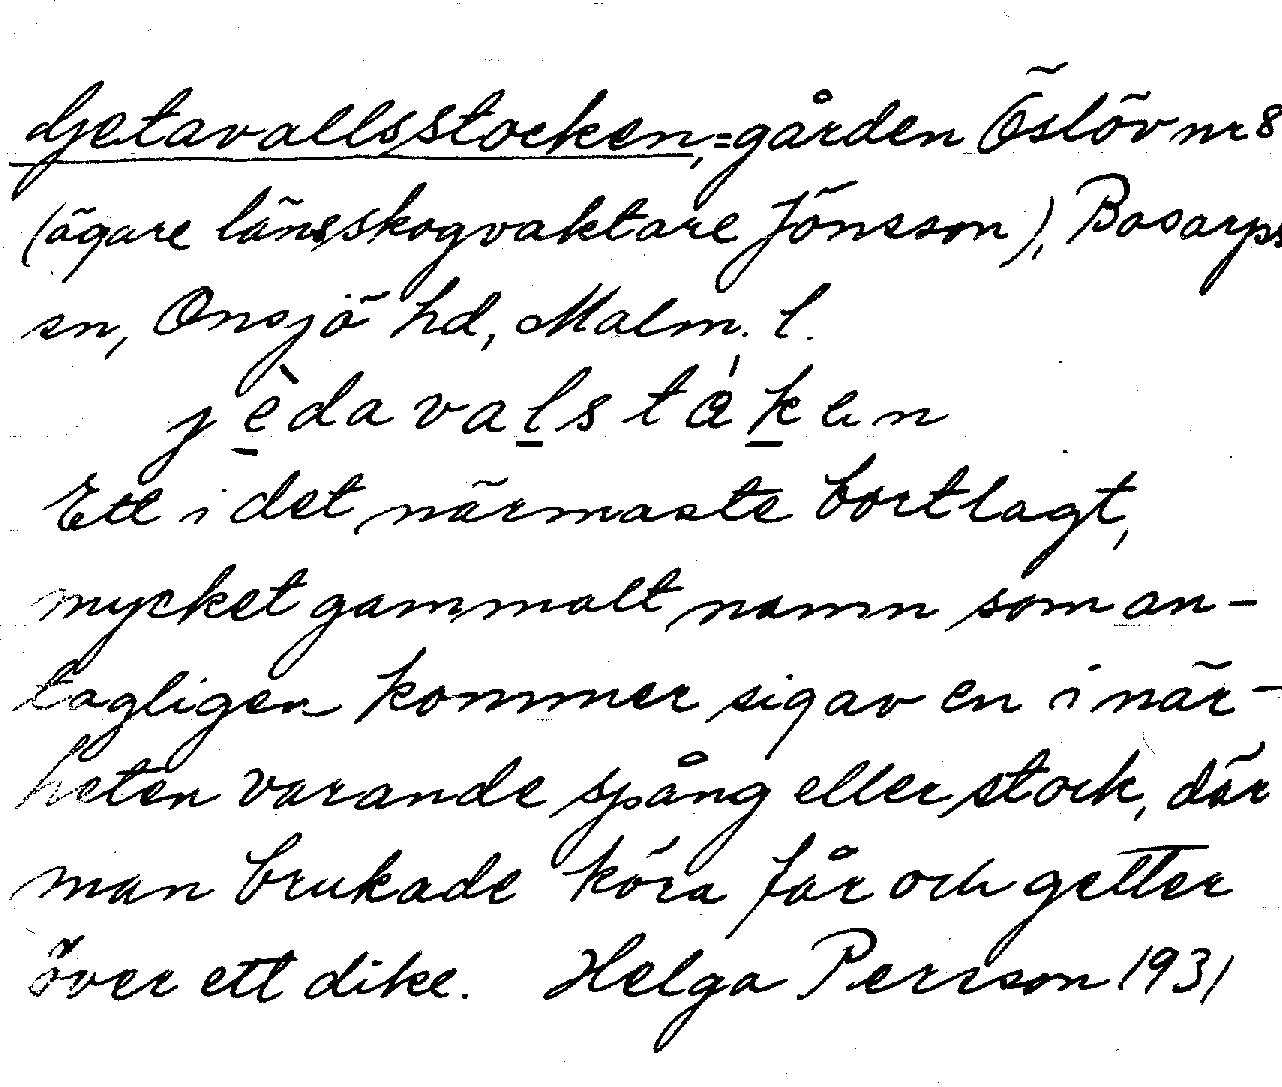 Getavallsstocken, = gården Öslöv nr 8
(ägare länsskogvaktare Jönsson), Bosarps
sn, Onsjö hd, Malm. l.
jèdavalståken
Ett i det närmaste bortlagt,
mycket gammalt namn som an-
tagligen kommer sig av en i när-
heten varande spång eller stock, där
man brukade köra får och getter
över ett dike. Helga Persson 1931